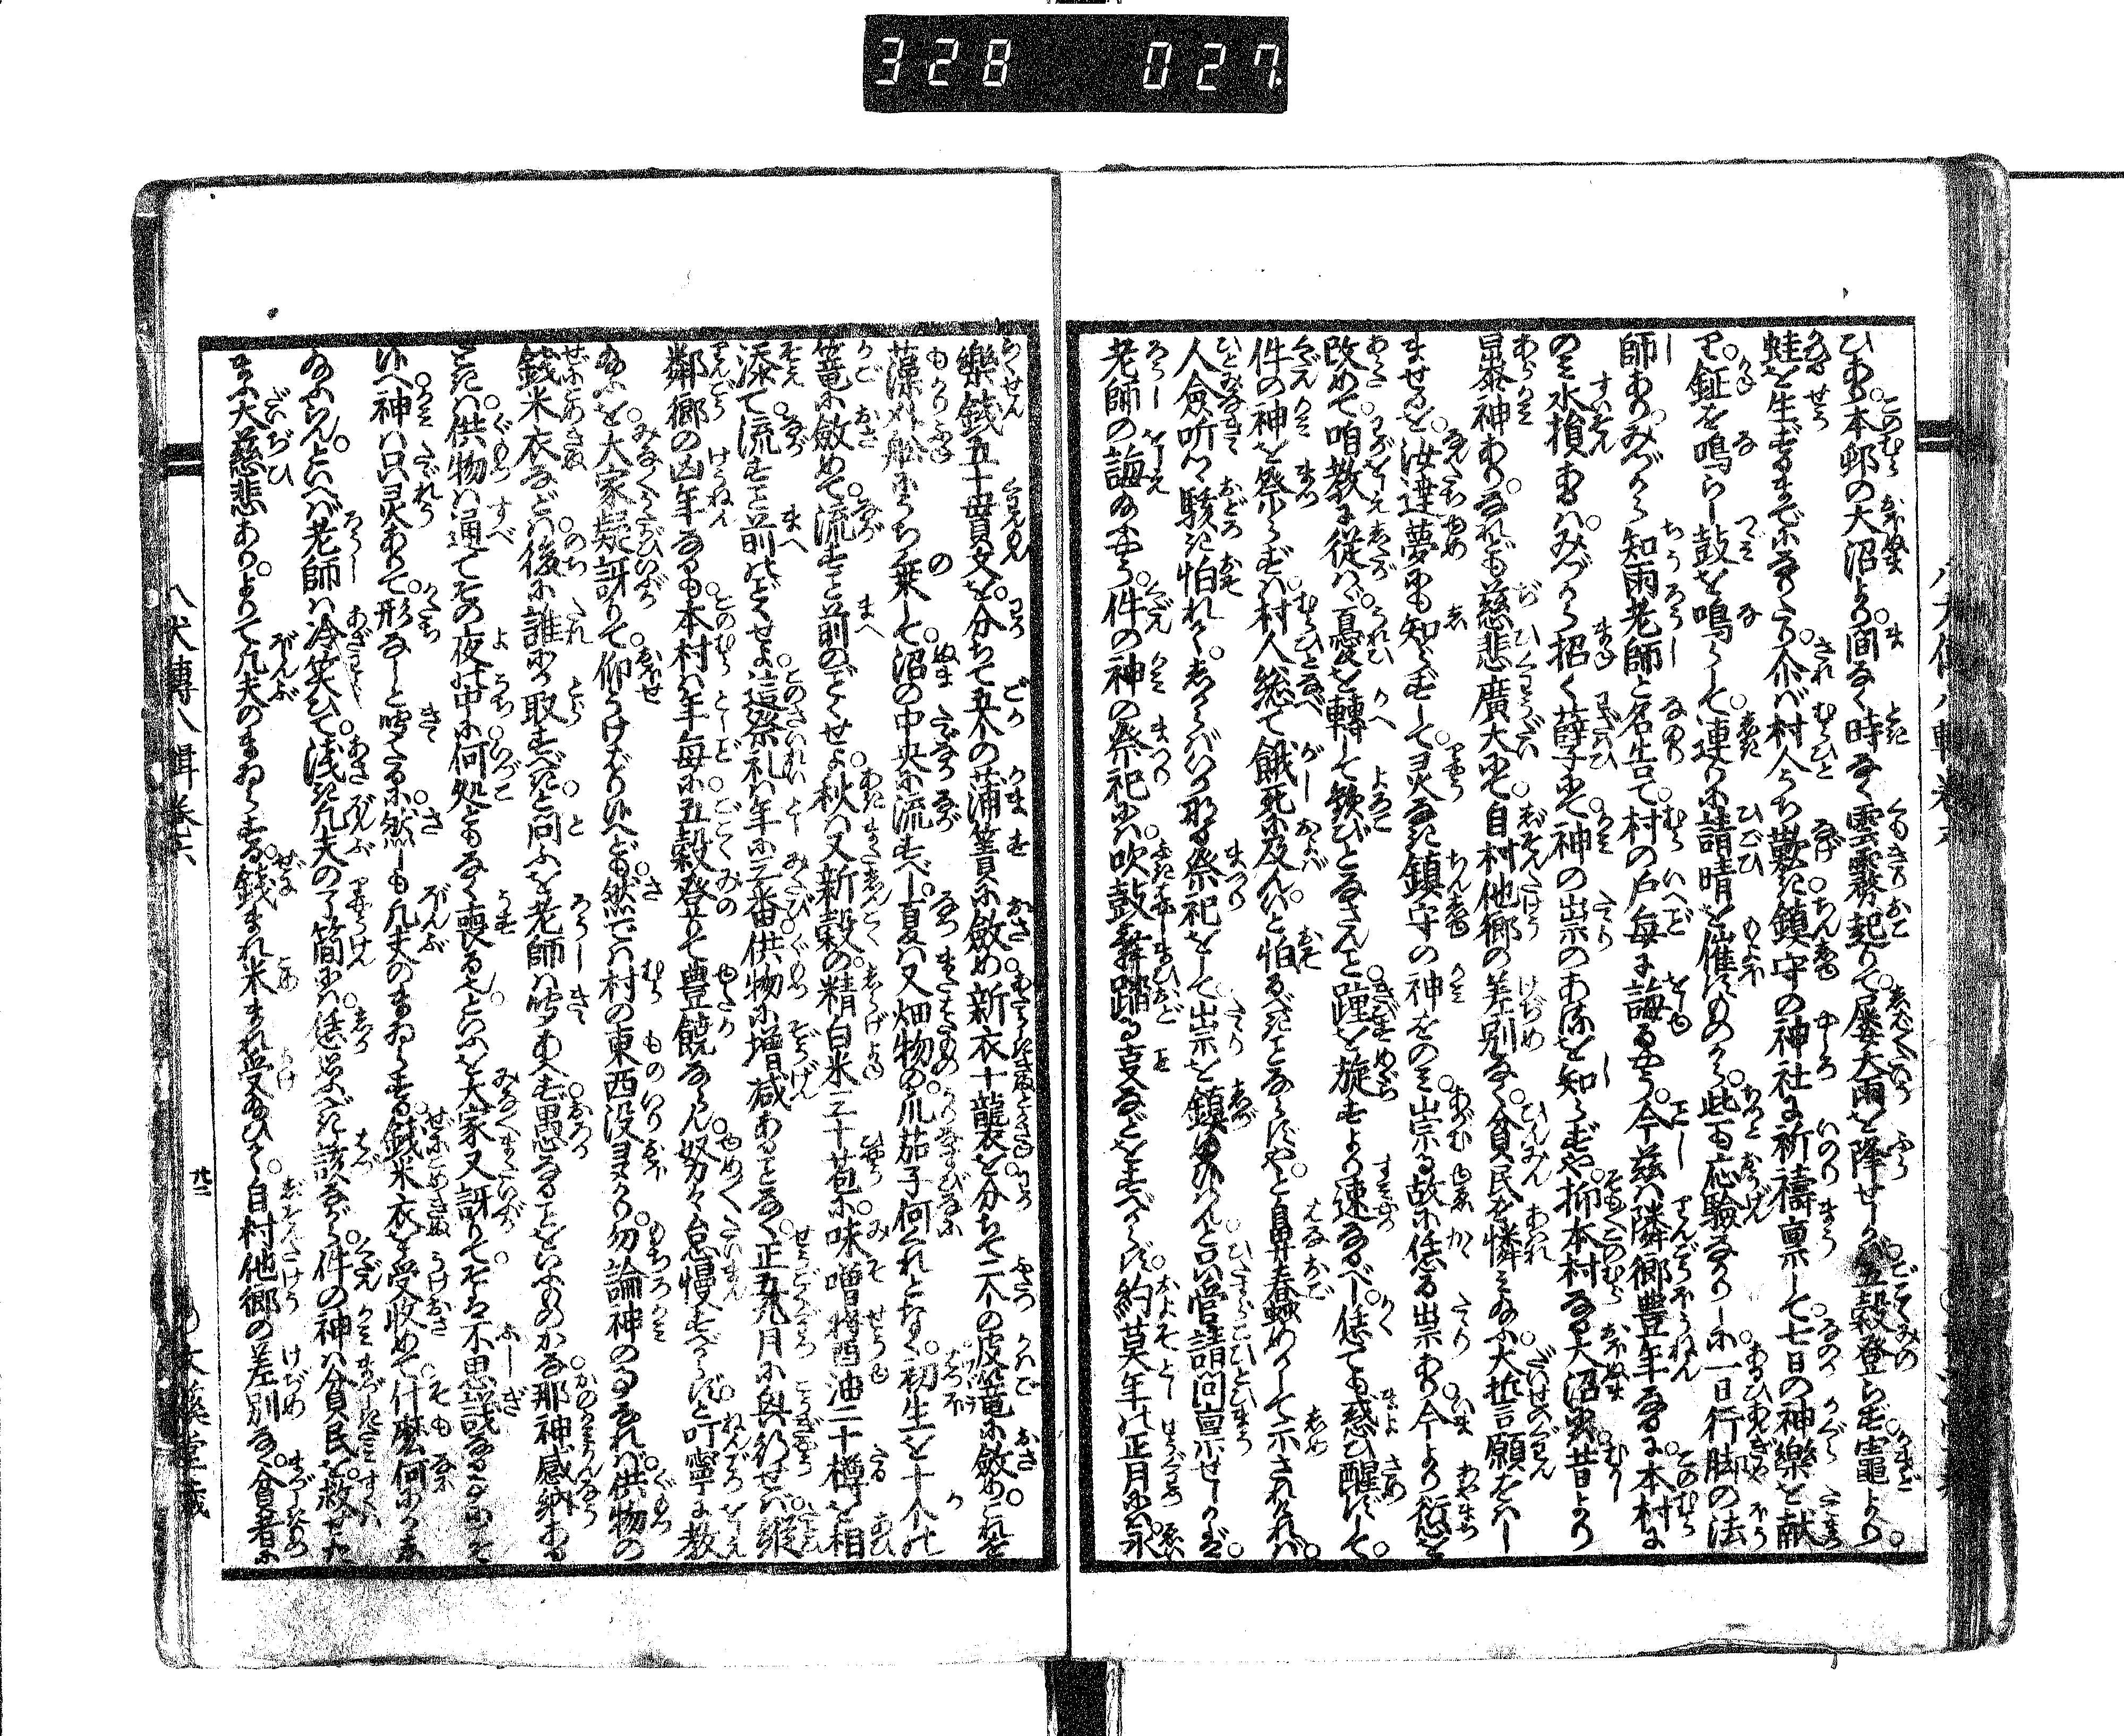 328 027
ひあり。本邨の大沼より。間なく時なく雲霧起りて。屡大雨を降せしかば。五穀登らず。竈より。
蛙を生ずるまでになりにたり。介れば村人うち歎き。鎮守の神社に祈禱禀して。七日の神樂を献
り。鉦を鳴らし鼓を鳴らして。連りに請晴を催せしものから。些も応驗なかりしに。一日行脚の法
師あり。みづから知雨老師と名告て。村の戸毎に誨るやう。今茲は隣郷豊年なるに。本村に
のみ水損あるは。みづから招く孽にて。神の祟のあるを知らずや。抑本村なる大沼には。昔より
暴神あり。なれども慈悲廣大にて。自村他郷の差別なく。貧民を憐み給ふ。大誓言願をはし
ませるを。汝達夢にも知らずして。灵なき鎮守の神をのみ。崇る故に恁る祟あり。今より愆を
改めて。咱教に從はゞ。憂を轉して歡びとなさんこと。踵を旋すより速なるべし。恁ても惑ひ醒ずして。
件の神を祭らずは。村人総て餓死に及んこと。怕るべきことならずや。と鼻蠢めかして示されければ。
人僉听て駭き怕れて。しからばいかなる祭祀をして。出祟を鎮め給はんと。只管請問禀せしかば。
老師の誨給ふやう。件の神の祭祀には。吹鼓舞踏る支などをすべからず。約莫年の正月には。永
樂錢五十貫文を。分ちて五ツの蒲簀に斂め。新衣十襲を。分ちて二个の皮篭に斂め。これを
藻刈船にうち乗して。沼の中央に流すべし。夏は又畑物の。瓜茄子何くれとなく。初生を十个の
篭に斂めて。流すこと前のごとくせよ。秋は又新穀の。精白米三十苞に。味噌醤油二十樽を相
添て。流すこと前のごとくせよ。這祭礼は年に三番。供物に増减あることなく。正五九月に興行せば。縦
鄰郷の凶年なるも。本村は年毎に。五穀登りて豊饒ならん。努々怠慢すべからず。と叮寧に教
給ふを。大家疑訝りて。仰うけ給はり候へども。然では村の東西没多かり。勿論神の事なれば。供物の
錢米衣などは。後に誰にか取すべき。と問ふを老師は听あへず。愚なることをいふものかな。那神感納ある
ときは。供物は通てその夜の中に。何処ともなく喪るゝ。といふを大家又訝りて。そは不思議なる事にこそ
候へ。神は只灵ありて。形なしと听てるに。然しも凡夫のまゐらする。錢米衣を受收めて。什麼何にかな
給ふらん。といへば老師は冷笑ひて。浅き凡夫の了簡には。恁思ふべき該ながら。件の神は貧民を。救せた
まふ大慈悲あり。よりて凡夫のまゐらする。錢まれ米まれ受給ひて。自村他郷の差別なく。貧者に
八犬傳八輯卷六
廿二
文溪堂藏